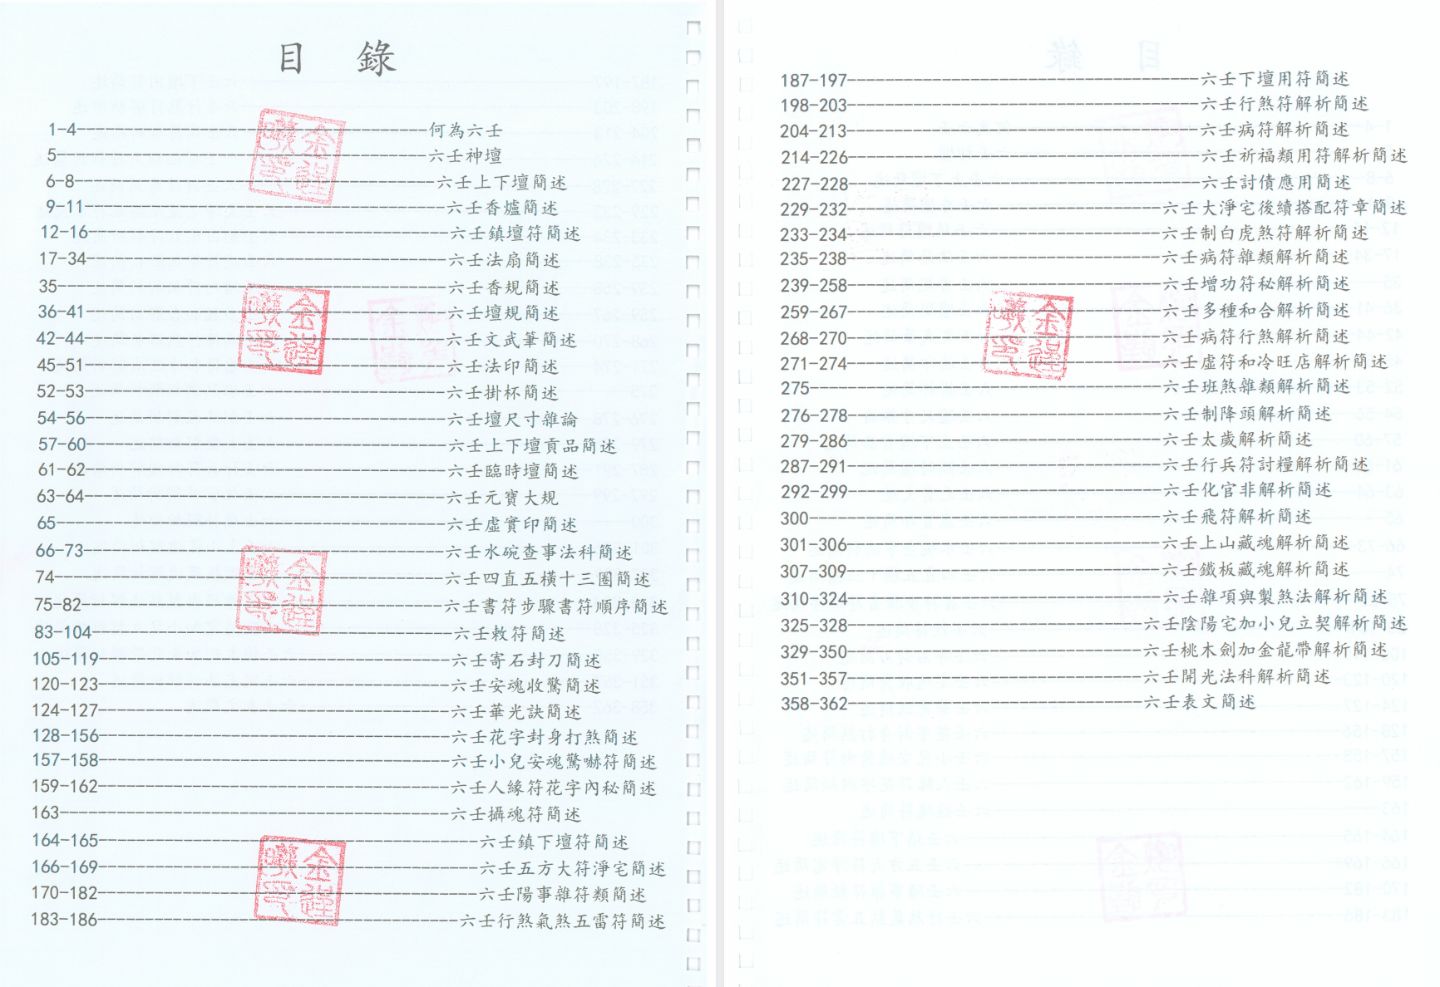 目 錄
1-4 何為六壬
5 六壬神壇
6-8 六壬上下壇簡述
9-11 六壬香爐簡述
12-16 六壬鎮壇符簡述
17-34 六壬法扇簡述
35 六壬香規簡述
36-41 六壬壇規簡述
42-44 六壬文武筆簡述
45-51 六壬法印簡述
52-53 六壬掛杯簡述
54-56 六壬壇尺寸雜論
57-60 六壬上下壇貢品簡述
61-62 六壬臨時壇簡述
63-64 六壬元寶大規
65 六壬虛實印簡述
66-73 六壬水碗查事法科簡述
74 六壬四直五橫十三圈簡述
75-82 六壬書符步驟書符順序簡述
83-104 六壬敕符簡述
105-119 六壬寄石封刀簡述
120-123 六壬安魂收驚簡述
124-127 六壬華光訣簡述
128-156 六壬花字封身打煞簡述
157-158 六壬小兒安魂驚嚇符簡述
159-162 六壬人緣符花字內秘簡述
163 六壬攝魂符簡述
164-165 六壬鎮下壇符簡述
166-169 六壬五方大符淨宅簡述
170-182 六壬陽事雜符類簡述
183-186 六壬行煞氣煞五雷符簡述
187-197 六壬下壇用符簡述
198-203 六壬行煞符解析簡述
204-213 六壬病符解析簡述
214-226 六壬祈福類用符解析簡述
227-228 六壬討債應用簡述
229-232 六壬大淨宅後續搭配符章簡述
233-234 六壬制白虎煞符解析簡述
235-238 六壬病符雜類解析簡述
239-258 六壬增功符秘解析簡述
259-267 六壬多種和合解析簡述
268-270 六壬病符行煞解析簡述
271-274 六壬虛符和冷旺店解析簡述
275 六壬班煞雜類解析簡述
276-278 六壬制降頭解析簡述
279-286 六壬太歲解析簡述
287-291 六壬行兵符討糧解析簡述
292-299 六壬化官非解析簡述
300 六壬飛符解析簡述
301-306 六壬上山藏魂解析簡述
307-309 六壬鐵板藏魂解析簡述
310-324 六壬雜項與製煞法解析簡述
325-328 六壬陰陽宅加小兒立契解析簡述
329-350 六壬桃木劍加金龍帶解析簡述
351-357 六壬開光法科解析簡述
358-362 六壬表文簡述